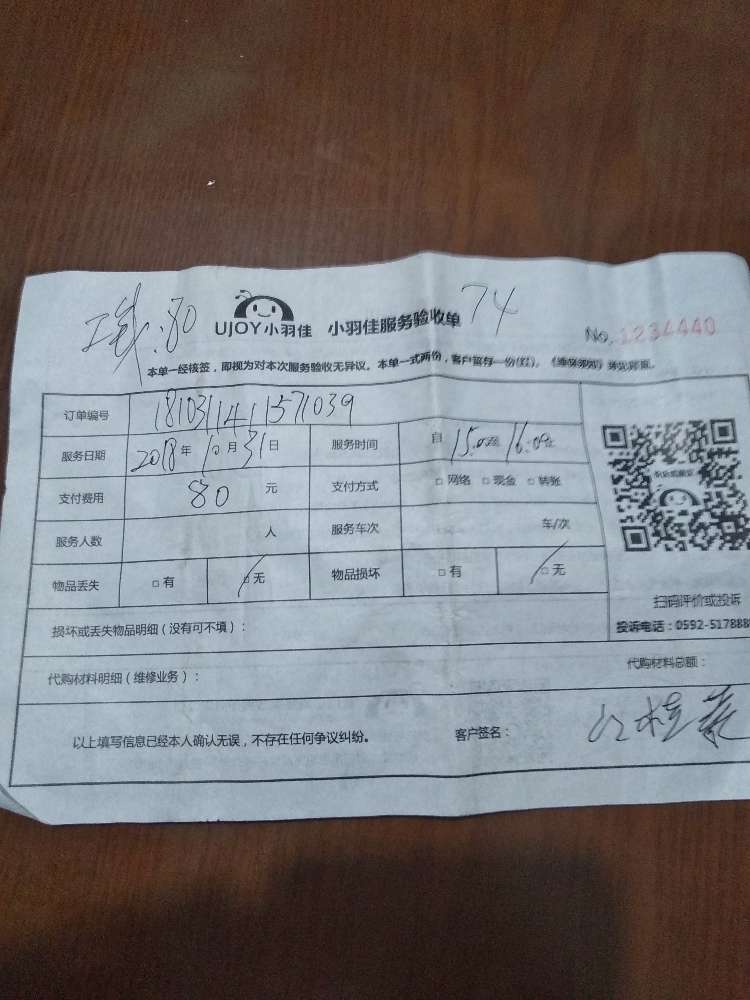 :80
UJOY小羽佳 小羽佳服务验收单 74
No. 1234440
本单一经核签，即视为对本次服务验收无异议。本单一式两份，客户留存一份(红)，
订单编号 1810311411571039
服务日期 2018年10月31日 服务时间 自 15:00至16:09
支付费用 80 元 支付方式 □网络 □现金 □转账
服务人数 人 服务车次 车/次
物品丢失 □有 □无 物品损坏 □有 □无
扫码评价或投诉
投诉电话：0592-517888
损坏或丢失物品明细（没有可不填）：
代购材料明细（维修业务）： 代购材料总额：
以上填写信息已经本人确认无误，不存在任何争议纠纷。 客户签名：